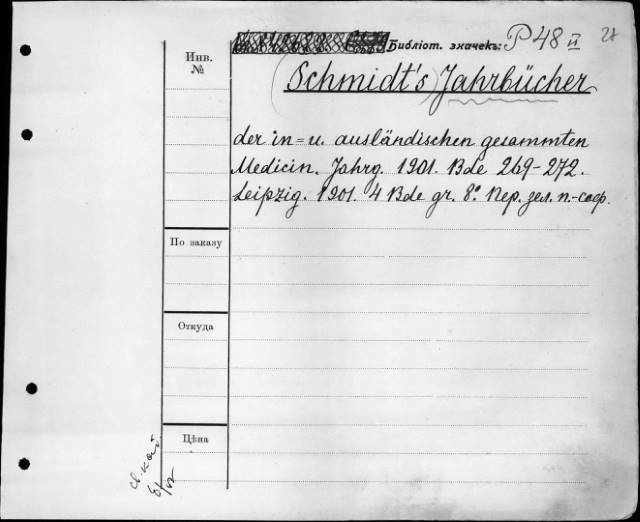 Библіот. значекъ: P 48 II
Инв.
№
Schmidt's Jahrbücher
der in= u. ausländischen gesammten
Medicin. Jahrg. 1901. Bde 269-272.
Leipzig. 1901. 4 Bde gr. 8º Пер. зел. п.-сафр.
По заказу
Откуда
Цѣна